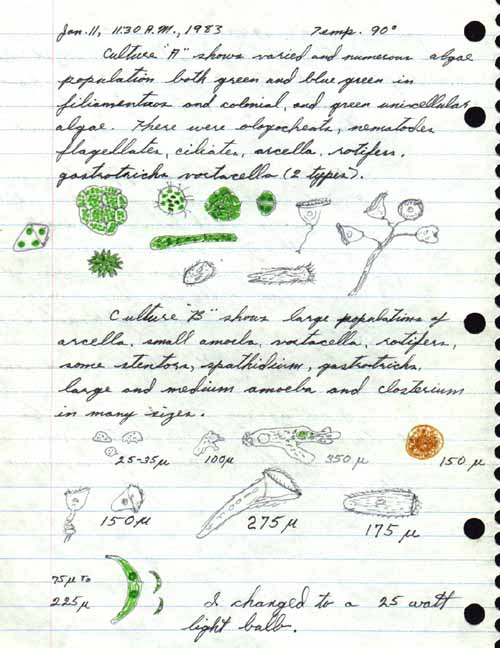 Jan. 11, 11:30 A.M., 1983 Temp. 90°
Culture "A" shows varied and numerous algae
population both green and blue green in
filiamentous and colonial, and green unicellular
algae. There were ologocheats, nematodes
flagellates, ciliates, arcella, rotifers,
gastrotrichs, vortacella (2 types).
Culture "B" shows large populations of
arcella, small amoeba, vortacella, rotifers,
some stentors, spathidium, gastrotrichs,
large and medium amoeba and closterium
in many sizes.
25-35µ 100µ 350µ 150µ
150µ 275µ 175µ
75µ to
225µ
I changed to a 25 watt
light bulb.